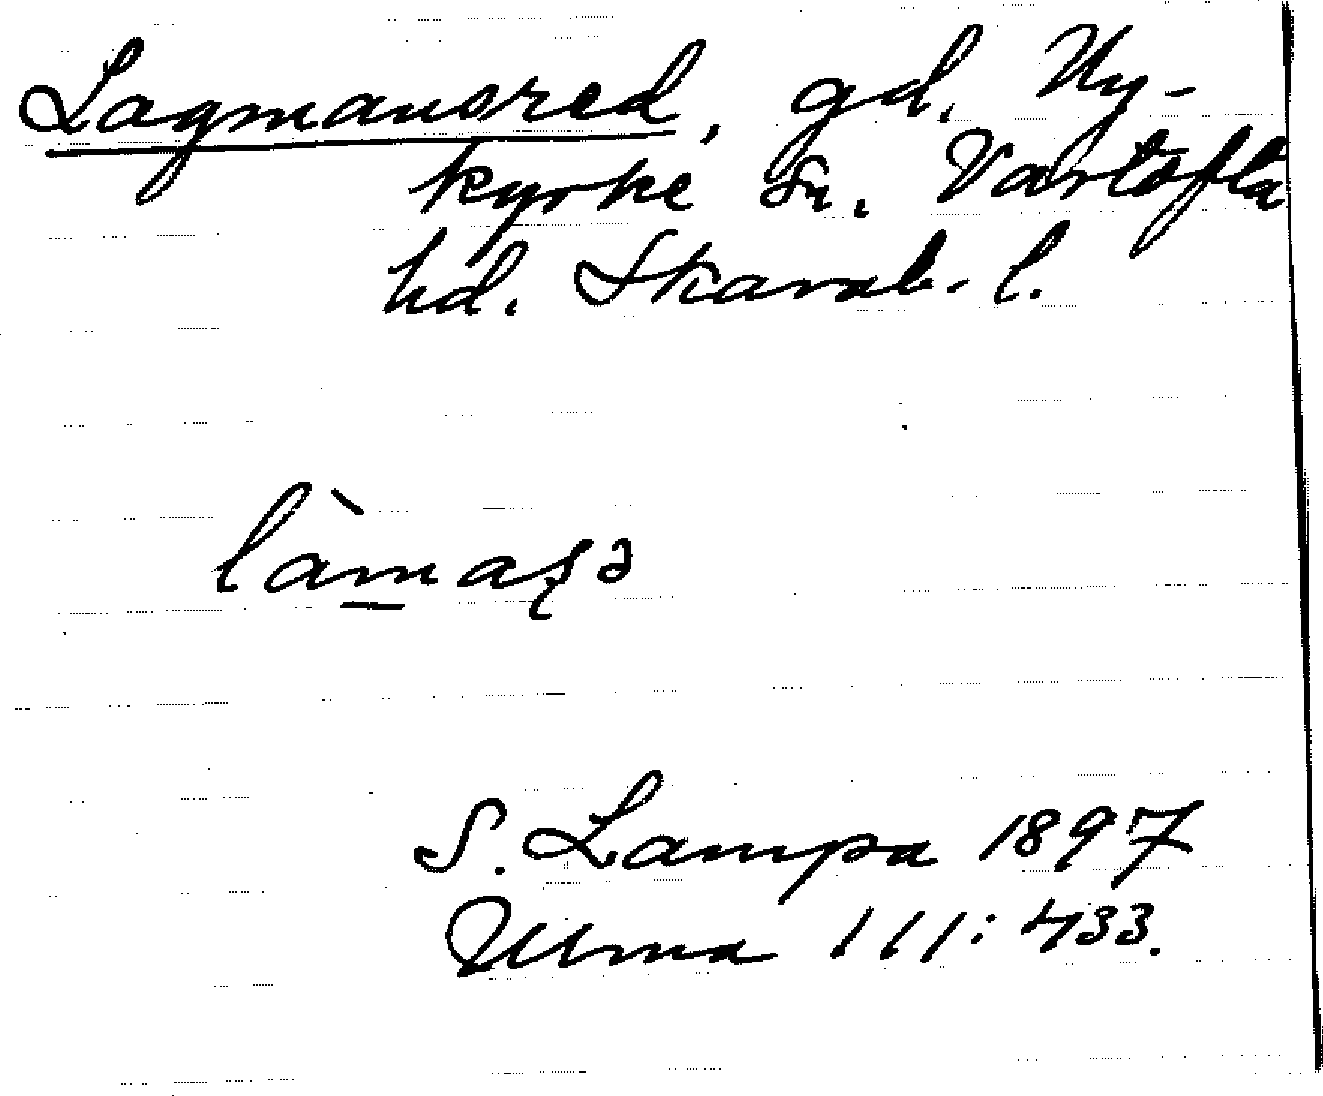 Lagmansred, gd. Ny-
kyrke sn. Vartofta
hd. Skarab. l.
làmaʂə
S. Lampa 1897
Ulma 111: 433.